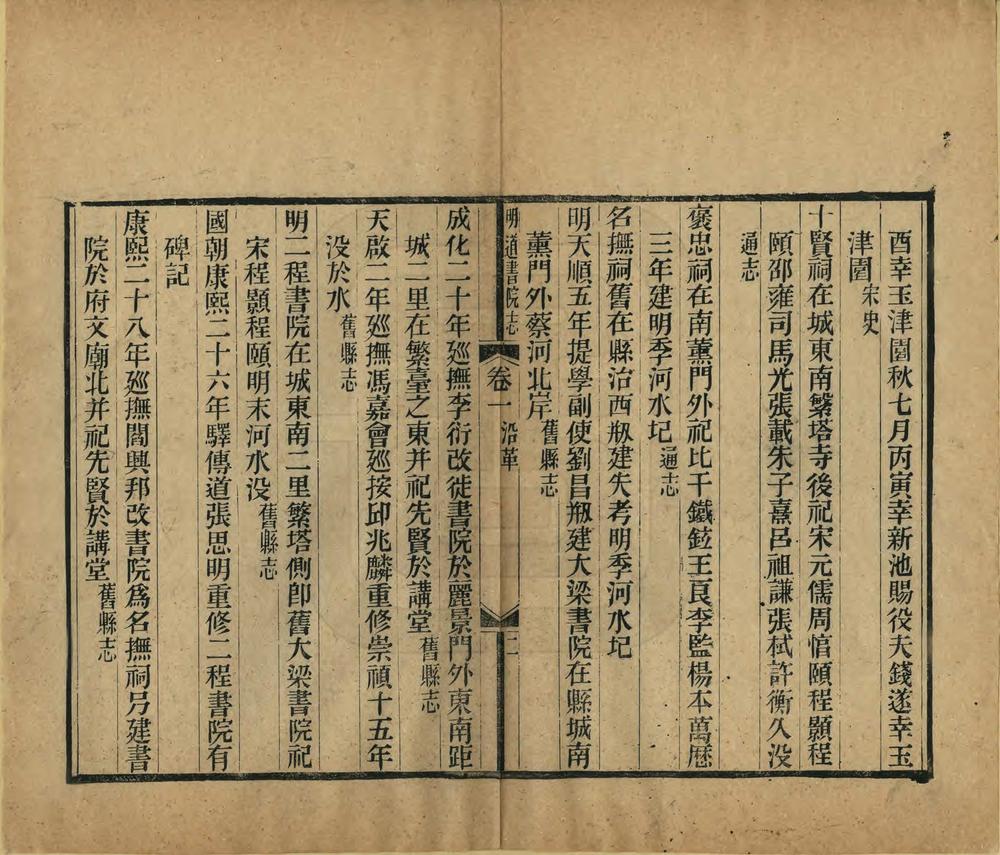 酉幸玉津園秋七月丙寅幸新池賜役夫錢遂幸玉
津園宋史
十賢祠在城東南繁塔寺後祀宋元儒周惇頤程顥程
頤邵雍司馬光張載朱子熹呂祖謙張栻許衡久没
通志
褒忠祠在南薰門外祀比干鐵鉉王良李監楊本萬歷
三年建明季河水圮通志
名撫祠舊在縣治西剏建失考明季河水圮
明天順五年提學副使劉昌剏建大梁書院在縣城南
薰門外蔡河北岸舊縣志
明道書院志
卷一 沿革
二
成化二十年廵撫李衍改徙書院於麗景門外東南距
城二里在繁臺之東并祀先賢於講堂舊縣志
天啟二年廵撫馮嘉會廵按邱兆麟重修崇禎十五年
没於水舊縣志
明二程書院在城東南二里繁塔側卽舊大梁書院祀
宋程顥程頤明末河水没舊縣志
國朝康熙二十六年驛傳道張思明重修二程書院有
碑記
康熙二十八年廵撫閻興邦改書院爲名撫祠另建書
院於府文廟北并祀先賢於講堂舊縣志